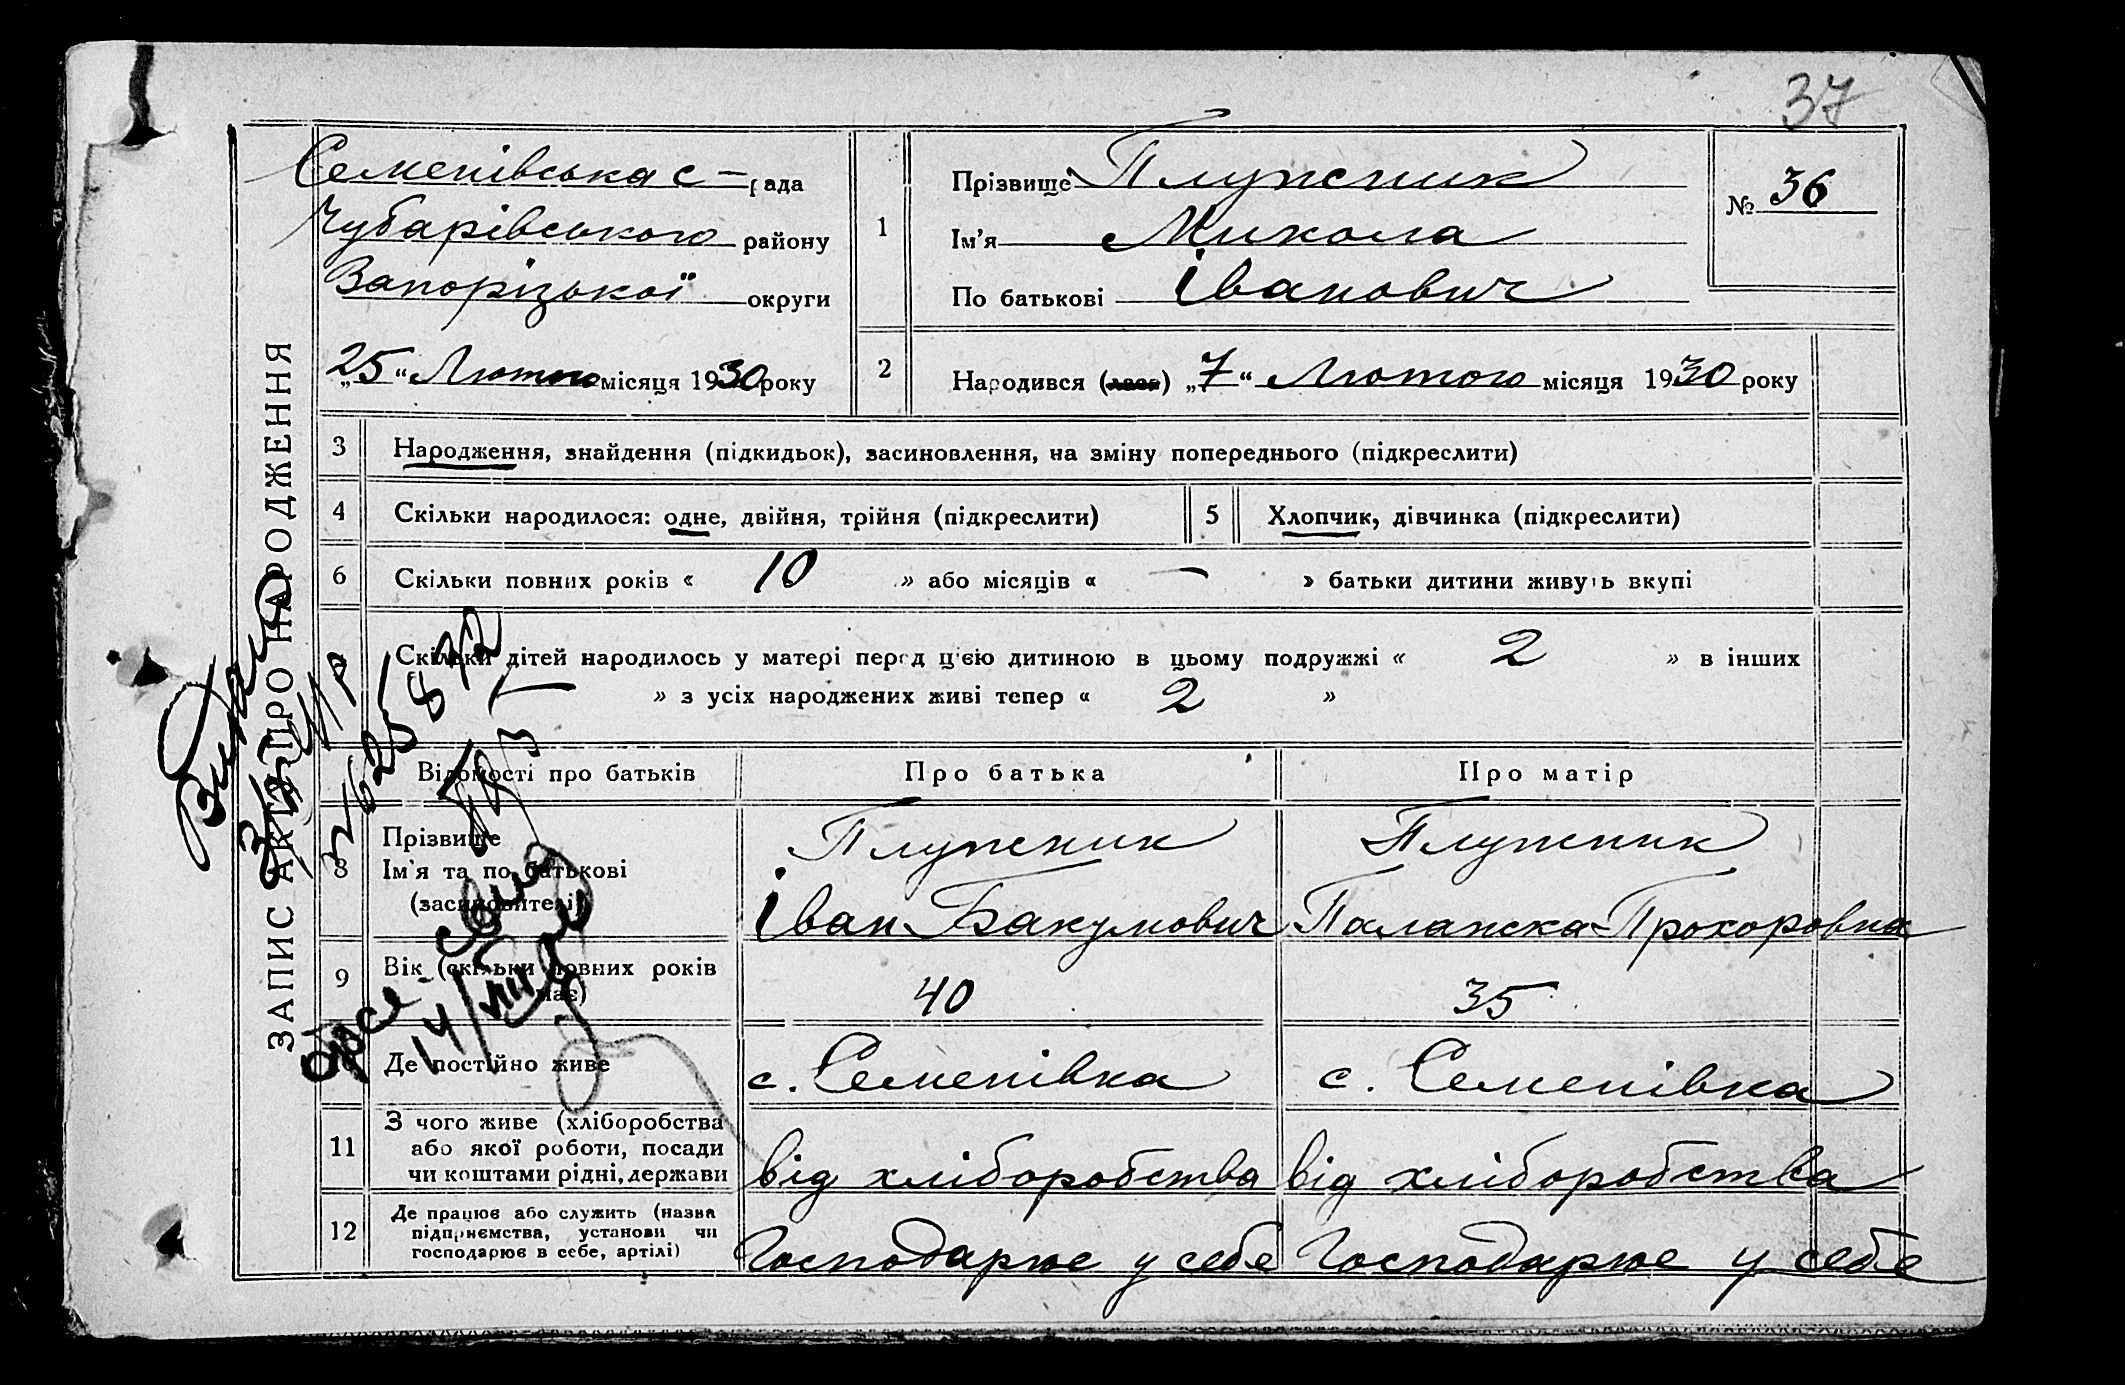 37
Семенівська с- рада
Чубарівського району
Запорізької округи
„25“ Лютого місяця 1930 року
1
Прізвище Плужник
Ім'я Микола
По батькові Іванович
№ 36
2
Народився (лась) „7“ Лютого місяця 1930 року
ЗАПИС АКТІВ ПРО НАРОДЖЕННЯ
3 Народження, знайдення (підкидьок), засиновлення, на зміну попереднього (підкреслити)
4 Скільки народилося: одне, двійня, трійня (підкреслити) 5 Хлопчик, дівчинка (підкреслити)
6 Скільки повних років « 10 » або місяців « — » батьки дитини живуть вкупі
Скільки дітей народилось у матері перед цією дитиною в цьому подружжі « 2 » в інших
— » з усіх народжених живі тепер « 2 »
Відомості про батьків Про батька Про матір
8
Прізвище Плужник Плужник
Ім'я та по батькові
(засиновителі) Іван Бакумович Палажка Прохоровна
9 Вік (скільки повних років має) 40 35
Де постійно живе с. Семенівка с. Семенівка
11 З чого живе (хліборобства
або якої роботи, посади
чи коштами рідні, держави від хліборобства від хліборобства
12 Де працює або служить (назва
підприємства, установи чи
господарює в себе, артілі) Господарює у себе Господарює у себе